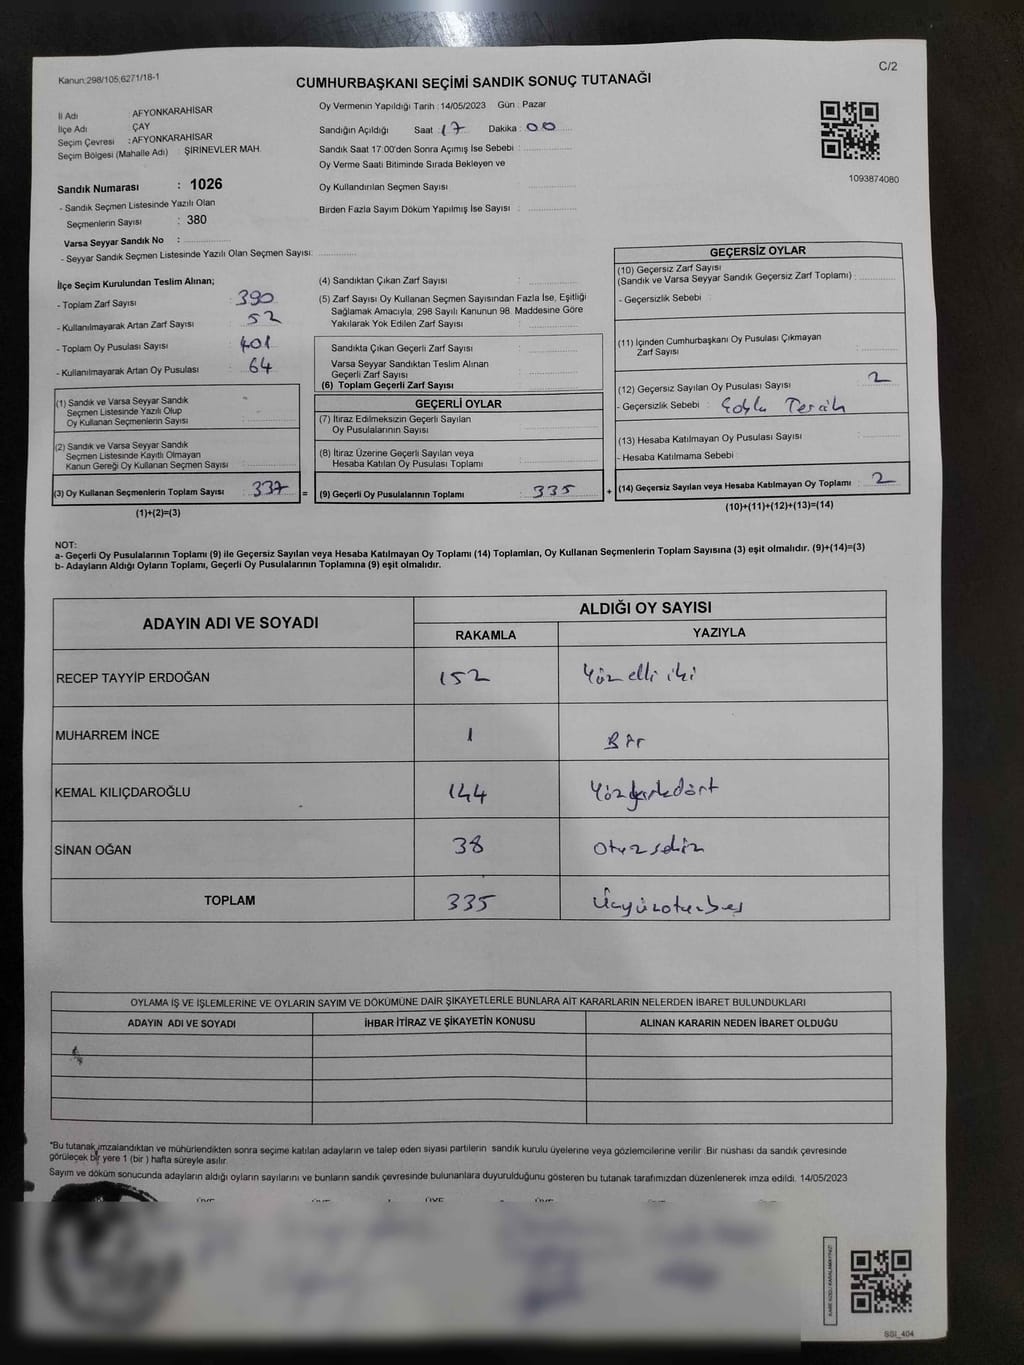 Kanun:298/105,6271/18-1
C/2
CUMHURBAŞKANI SEÇİMİ SANDIK SONUÇ TUTANAĞI
İl Adı : AFYONKARAHİSAR
İlçe Adı : ÇAY
Seçim Çevresi : AFYONKARAHİSAR
Seçim Bölgesi (Mahalle Adı) : ŞİRİNEVLER MAH.
Sandık Numarası : 1026
- Sandık Seçmen Listesinde Yazılı Olan
Seçmenlerin Sayısı : 380
Varsa Seyyar Sandık No :
- Seyyar Sandık Seçmen Listesinde Yazılı Olan Seçmen Sayısı:
Oy Vermenin Yapıldığı Tarih : 14/05/2023 Gün : Pazar
Sandığın Açıldığı Saat : 17 Dakika : 00
Sandık Saat 17:00'den Sonra Açımış İse Sebebi :
Oy Verme Saati Bitiminde Sırada Bekleyen ve
Oy Kullandırılan Seçmen Sayısı
Birden Fazla Sayım Döküm Yapılmış İse Sayısı :
1093874080
İlçe Seçim Kurulundan Teslim Alınan;
- Toplam Zarf Sayısı : 390
- Kullanılmayarak Artan Zarf Sayısı : 52
- Toplam Oy Pusulası Sayısı : 401
- Kullanılmayarak Artan Oy Pusulası : 64
(1) Sandık ve Varsa Seyyar Sandık
Seçmen Listesinde Yazılı Olup
Oy Kullanan Seçmenlerin Sayısı
(2) Sandık ve Varsa Seyyar Sandık
Seçmen Listesinde Kayıtlı Olmayan
Kanun Gereği Oy Kullanan Seçmen Sayısı
(3) Oy Kullanan Seçmenlerin Toplam Sayısı : 337 =
(1)+(2)=(3)
(4) Sandıktan Çıkan Zarf Sayısı :
(5) Zarf Sayısı Oy Kullanan Seçmen Sayısından Fazla İse, Eşitliği
Sağlamak Amacıyla; 298 Sayılı Kanunun 98. Maddesine Göre
Yakılarak Yok Edilen Zarf Sayısı :
Sandıkta Çıkan Geçerli Zarf Sayısı :
Varsa Seyyar Sandıktan Teslim Alınan
Geçerli Zarf Sayısı :
(6) Toplam Geçerli Zarf Sayısı :
GEÇERLİ OYLAR
(7) İtiraz Edilmeksizin Geçerli Sayılan
Oy Pusulalarının Sayısı :
(8) İtiraz Üzerine Geçerli Sayılan veya
Hesaba Katılan Oy Pusulası Toplamı :
(9) Geçerli Oy Pusulalarının Toplamı : 335 +
GEÇERSİZ OYLAR
(10) Geçersiz Zarf Sayısı
(Sandık ve Varsa Seyyar Sandık Geçersiz Zarf Toplamı) :
- Geçersizlik Sebebi :
(11) İçinden Cumhurbaşkanı Oy Pusulası Çıkmayan
Zarf Sayısı :
(12) Geçersiz Sayılan Oy Pusulası Sayısı : 2
- Geçersizlik Sebebi : Tercih
(13) Hesaba Katılmayan Oy Pusulası Sayısı :
- Hesaba Katılmama Sebebi :
(14) Geçersiz Sayılan veya Hesaba Katılmayan Oy Toplamı : 2
(10)+(11)+(12)+(13)=(14)
NOT:
a- Geçerli Oy Pusulalarının Toplamı (9) ile Geçersiz Sayılan veya Hesaba Katılmayan Oy Toplamı (14) Toplamları, Oy Kullanan Seçmenlerin Toplam Sayısına (3) eşit olmalıdır. (9)+(14)=(3)
b- Adayların Aldığı Oyların Toplamı, Geçerli Oy Pusulalarının Toplamına (9) eşit olmalıdır.
ADAYIN ADI VE SOYADI
ALDIĞI OY SAYISI
RAKAMLA YAZIYLA
RECEP TAYYİP ERDOĞAN 152 Yüz elli iki
MUHARREM İNCE 1 Bir
KEMAL KILIÇDAROĞLU 144 Yüzkırkdört
SİNAN OĞAN 38 Otuzsekiz
TOPLAM 335 Üçyüzotuzbeş
OYLAMA İŞ VE İŞLEMLERİNE VE OYLARIN SAYIM VE DÖKÜMÜNE DAİR ŞİKAYETLERLE BUNLARA AİT KARARLARIN NELERDEN İBARET BULUNDUKLARI
ADAYIN ADI VE SOYADI İHBAR İTİRAZ VE ŞİKAYETİN KONUSU ALINAN KARARIN NEDEN İBARET OLDUĞU
*Bu tutanak imzalandıktan ve mühürlendikten sonra seçime katılan adayların ve talep eden siyasi partilerin sandık kurulu üyelerine veya gözlemcilerine verilir. Bir nüshası da sandık çevresinde
görülecek bir yere 1 (bir ) hafta süreyle asılır.
Sayım ve döküm sonucunda adayların aldığı oyların sayılarını ve bunların sandık çevresinde bulunanlara duyurulduğunu gösteren bu tutanak tarafımızdan düzenlenerek imza edildi. 14/05/2023
KARE KODU KARALAMAYINIZ!
SSI_404